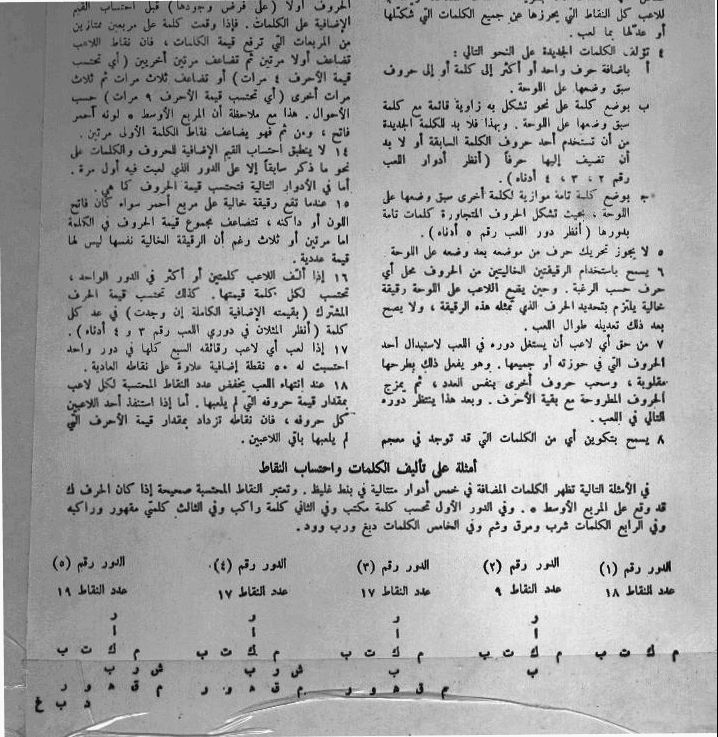 للاعب كل النقاط التي يحرزها عن جميع الكلمات التي شكّلها
أو عدّلها بما لعب .
٤ تؤلف الكلمات الجديدة على النحو التالي :
أ باضافة حرف واحد أو أكثر إلى كلمة أو إلى حروف
سبق وضعها على اللوحة .
ب بوضع كلمة على نحو تشكل به زاوية قائمة مع كلمة
سبق وضعها على اللوحة . وبهذا فلا بد للكلمة الجديدة
من أن تستخدم أحد حروف الكلمة السابقة أو لا بد
أن تضيف إليها حرفاً ( أنظر أدوار اللعب
رقم ٢ ، ٣ ، ٤ أدناه ) .
ج بوضع كلمة تامة موازية لكلمة أخرى سبق وضعها على
اللوحة ، بحيث تشكل الحروف المتجاورة كلمات تامة
بدورها ( أنظر دور اللعب رقم ٥ أدناه ) .
٥ لا يجوز تحريك حرف من موضعه بعد وضعه على اللوحة .
٦ يسمح باستخدام الرقيقتين الخاليتين من الحروف محل أي
حرف حسب الرغبة . وحين يضع اللاعب على اللوحة رقيقة
خالية يلتزم بتحديد الحرف الذي تمثله هذه الرقيقة ، ولا يصح
بعد ذلك تعديله طوال اللعب .
٧ من حق أي لاعب أن يستغل دوره في اللعب لاستبدال أحد
الحروف التي في حوزته أو جميعها . وهو يفعل ذلك بطرحها
مقلوبة ، وسحب حروف أخرى بنفس العدد ، ثم يمزج
الحروف المطروحة مع بقية الأحرف . وبعد هذا ينتظر دوره
التالي في اللعب .
٨ يسمح بتكوين أي من الكلمات التي قد توجد في معجم
الحروف أولا ( على فرض وجودها ) قبل احتساب القيم
الإضافية على الكلمات . فإذا وقعت كلمة على مربعين ممتازين
من المربعات التي ترفع قيمة الكلمات ، فان نقاط اللاعب
تضاعف أولا مرتين ثم تضاعف مرتين أخريين ( أي تحتسب
قيمة الأحرف ٤ مرات ) أو تضاعف ثلاث مرات ثم ثلاث
مرات أخرى ( أي تحتسب قيمة الأحرف ٩ مرات ) حسب
الأحوال . هذا مع ملاحظة أن المربع الأوسط ٥ لونه أحمر
فاتح ، ومن ثم فهو يضاعف نقاط الكلمة الأولى مرتين .
١٤ لا ينطبق احتساب القيم الإضافية للحروف والكلمات على
نحو ما ذكر سابقاً إلا على الدور الذي لعبت فيه أول مرة .
أما في الأدوار التالية فتحتسب قيمة الحروف كما هي .
١٥ عندما تقع رقيقة خالية على مربع أحمر سواء كان فاتح
اللون أو داكنه ، تتضاعف مجموع قيمة الحروف في الكلمة
اما مرتين أو ثلاث رغم أن الرقيقة الخالية نفسها ليس لها
قيمة عددية .
١٦ إذا ألف اللاعب كلمتين أو أكثر في الدور الواحد ،
تحتسب لكل كلمة قيمتها . كذلك تحتسب قيمة الحرف
المشترك ( بقيمته الإضافية الكاملة إن وجدت ) في عد كل
كلمة ( أنظر المثلان في دوري اللعب رقم ٣ و ٤ أدناه ) .
١٧ إذا لعب أي لاعب رقائقه السبع كلها في دور واحد
احتسبت له ٥٠ نقطة إضافية علاوة على نقاطه العادية .
١٨ عند إنتهاء اللعب يخفض عدد النقاط المحتسبة لكل لاعب
بمقدار قيمة حروفه التي لم يلعبها . أما إذا استنفذ أحد اللاعبين
كل حروفه ، فان نقاطه تزداد بمقدار قيمة الأحرف التي
لم يلعبها باقي اللاعبين .
أمثلة على تأليف الكلمات واحتساب النقاط
في الأمثلة التالية تظهر الكلمات المضافة في خمس أدوار متتالية في بنط غليظ . وتعتبر النقاط المحتسبة صحيحة إذا كان الحرف ك
قد وقع على المربع الأوسط ٥ . وفي الدور الأول تحسب كلمة مكتب وفي الثاني كلمة راكب وفي الثالث كلمتي مقهور وراكبه
وفي الرابع الكلمات شرب ومرق وشم وفي الخامس الكلمات دبغ ورب وود .
الدور رقم (١) الدور رقم (٢) الدور رقم (٣) الدور رقم (٤) الدور رقم (٥)
عدد النقاط ١٨ عدد النقاط ٩ عدد النقاط ١٧ عدد النقاط ١٧ عدد النقاط ١٩
ر ر ر ر
ا ا ا ا
م ك ت ب م ك ت ب م ك ت ب م ك ت ب م ك ت ب
ب ب ش ر ب ش ر ب
م ق ه و ر م ق ه و ر م ق ه و ر
د ب غ